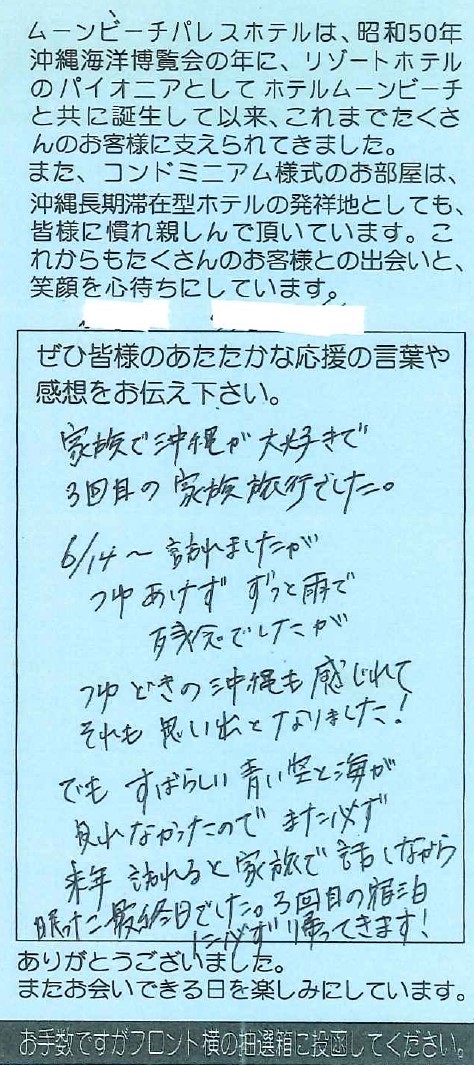 ムーンビーチパレスホテルは、昭和50年
沖縄海洋博覧会の年に、リゾートホテル
のパイオニアとしてホテルムーンビーチ
と共に誕生して以来、これまでたくさ
んのお客様に支えられてきました。
また、コンドミニアム様式のお部屋は、
沖縄長期滞在型ホテルの発祥地としても、
皆様に慣れ親しんで頂いています。こ
れからもたくさんのお客様との出会いと、
笑顔を心待ちにしています。
ぜひ皆様のあたたかな応援の言葉や
感想をお伝え下さい。
家族で沖縄が大好きで
3回目の家族旅行でした。
6/14〜訪れましたが
つゆあけず ずっと雨で
残念でしたが
つゆどきの沖縄も感じれて
それも思い出となりました!
でも すばらしい青い空と海が
見れなかったので また必ず
来年 訪れると家族で話しながら
眠った最終日でした。3回目の宿泊
に必ず帰ってきます!
ありがとうございました。
またお会いできる日を楽しみにしています。
お手数ですがフロント横の抽選箱に投函してください。